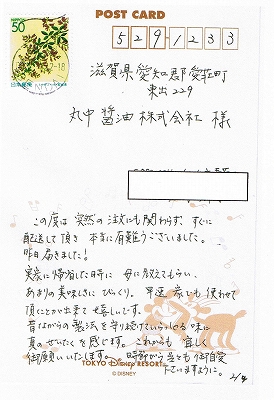 POST CARD
50
日本郵便
5291233
滋賀県愛知郡愛荘町
東出229
丸中醤油株式会社 様
この度は突然の注文にも関わらず、すぐに
配送して頂き本当に有難うございました。
昨日届きました!
実家に帰省した時に 母に教えてもらい、
あまりの美味しさにびっくり。早速 家でも使わせて
頂くことが出来て嬉しいです。
昔ながらの製法を守り続けていらっしゃる味に
真のぜいたくを感じます。これからも 宜しく
御願いいたします。時節がら皆さんも御自愛
下さいますように。
2/4
TOKYO Disney RESORT
©DISNEY